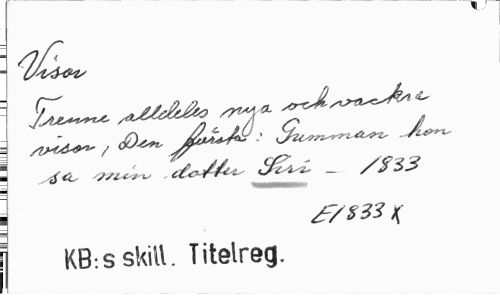 Visor
Trenne alldeles nya och vackra
visor, Den första: Gumman hon
sa min dotter Siri – 1833
E1833 x
KB:s skill. Titelreg.